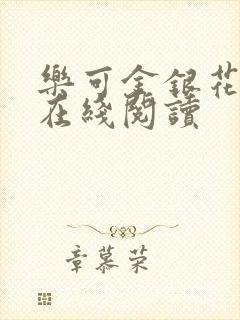 樂可金銀花
在綫閱讀
章慕荣